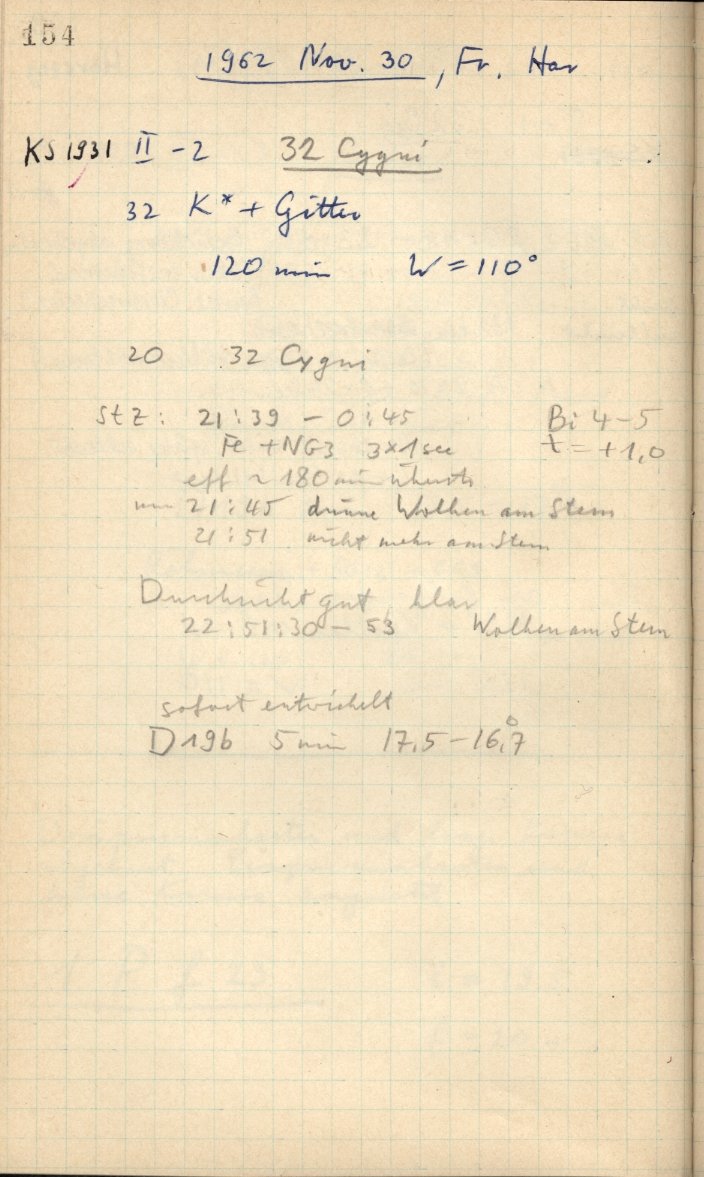 154
1962 Nov. 30, Fr. Har
KS 1931 II - 2 32 Cygni
32 K* + Gitter
120 min W = 110°
20 32 Cygni
Stz: 21:39 - 0:45 Bi 4-5
Fe + NG3 3x1sec t = +1,0
eff ~ 180 min
21:45 dünne Wolken am Stern
21:51 nicht mehr am Stern
Durchsicht gut, klar
22:51:30 - 53 Wolken am Stern
sofort entwickelt
D19b 5 min 17,5-16,7°